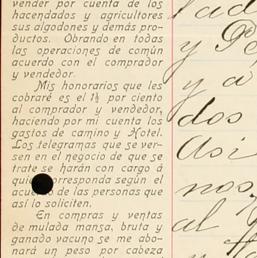 vender por cuenta de los
hacendados y agricultores
sus algodones y demás pro-
ductos. Obrando en todas
las operaciones de común
acuerdo con el comprador
y vendedor.
Mis honorarios que les
cobraré es el 1½ por ciento
al comprador y vendedor,
haciendo por mi cuenta los
gastos de camino y Hotel.
Los telegramas que se ver-
sen en el negocio de que se
trate se harán con cargo á
corresponda según el
de las personas que
así lo soliciten.
En compras y ventas
de mulada mansa, bruta y
ganado vacuno se me abo-
nará un peso por cabeza
y
y á
dos
Asi
nos
al